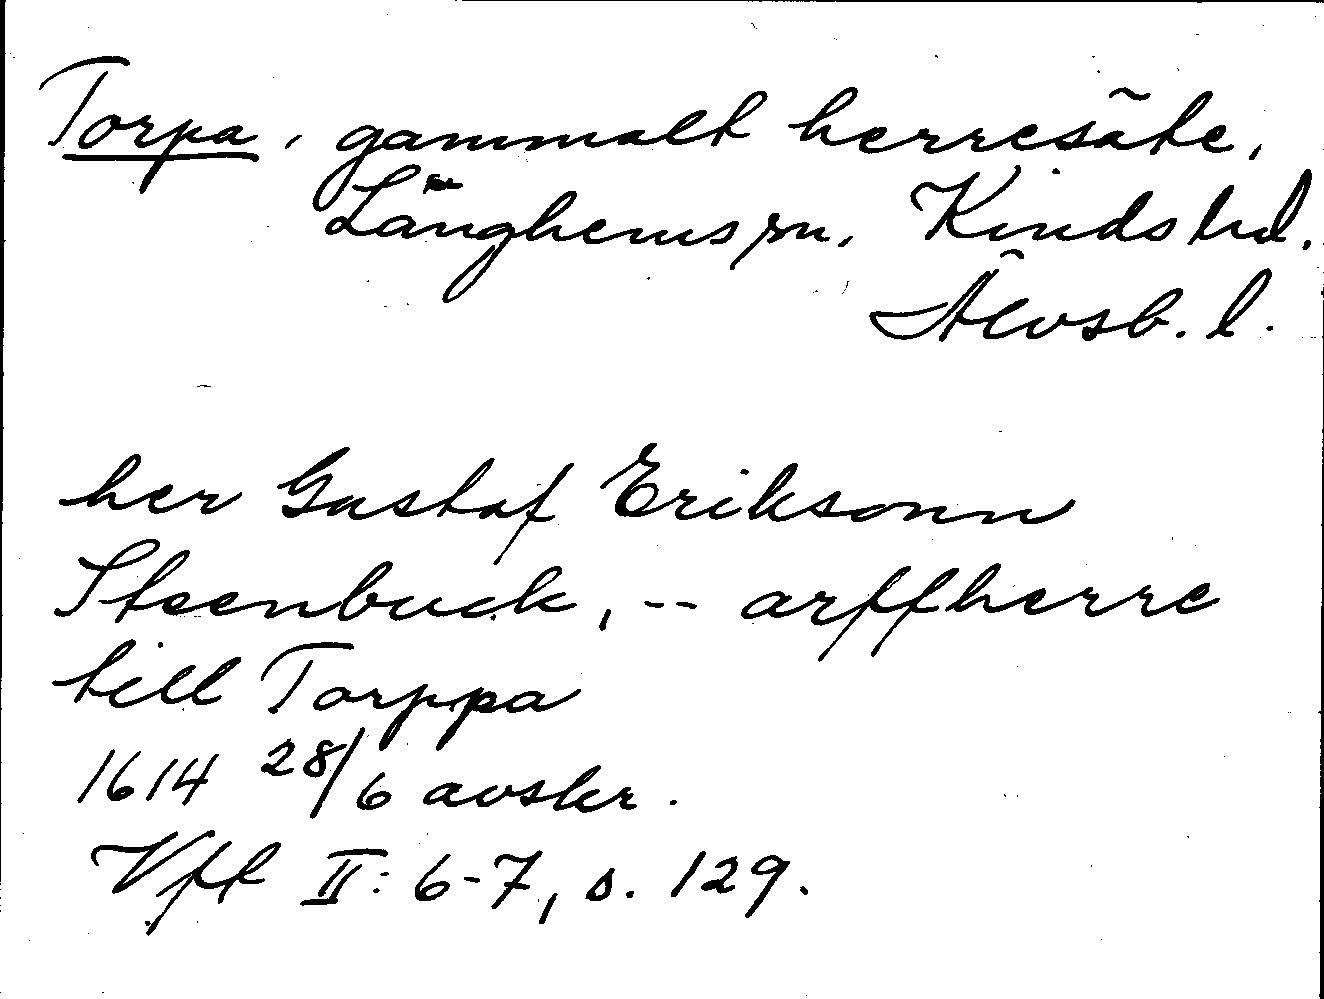 Torpa, gammalt herresäte,
Länghems sn, Kinds hd.
Älvsb. l.
her Gustaf Eriksonn
Steenbuck, -- arffherre
till Torppa
1614 28/6 avskr.
Vft II: 6-7, s. 129.